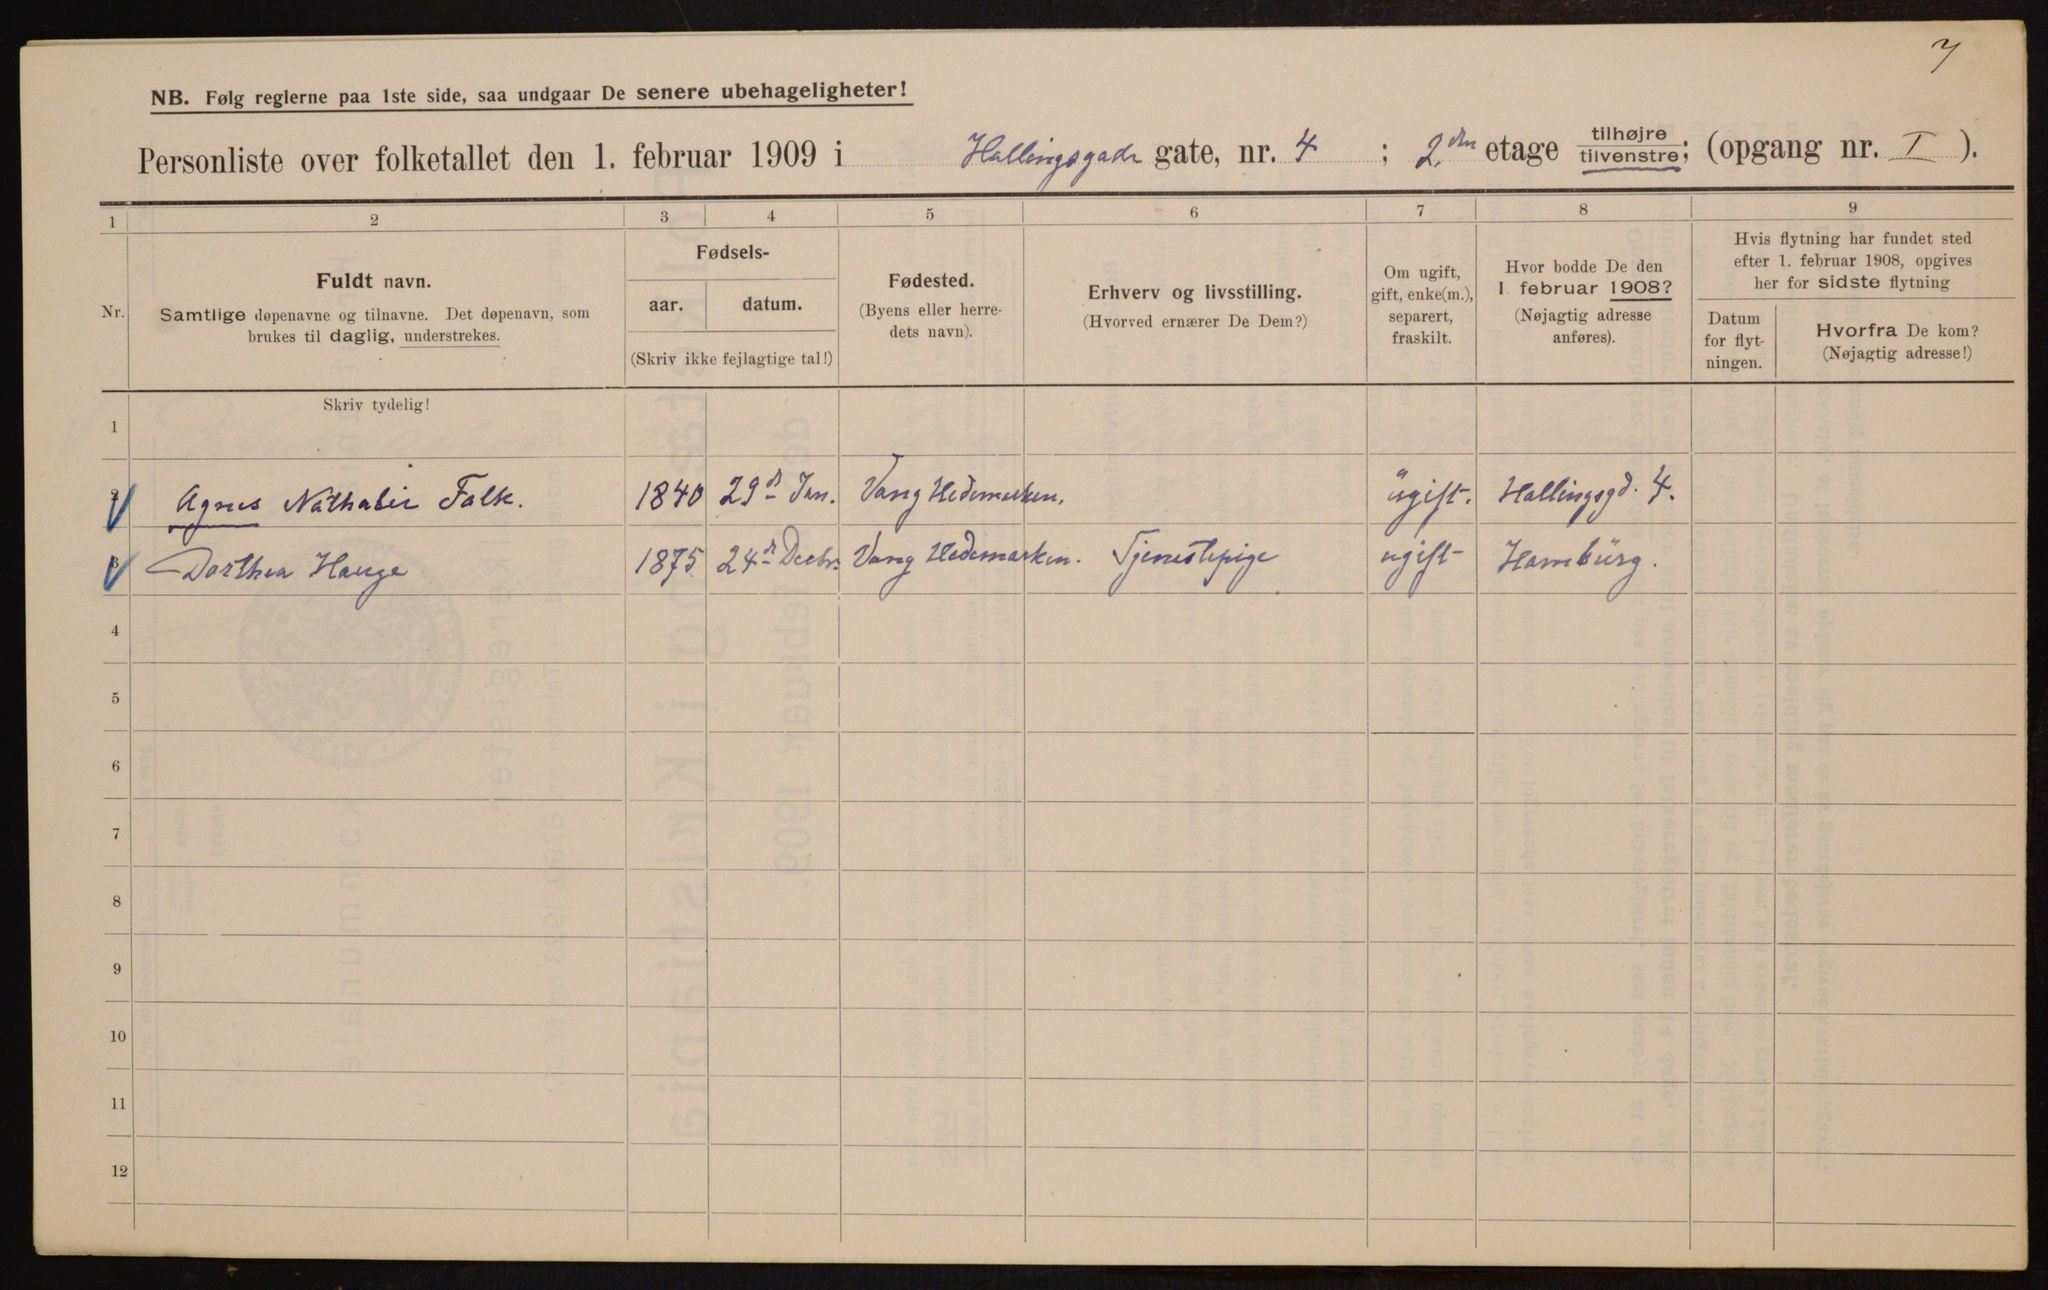 7
NB. Følg reglerne paa 1ste side, saa undgaar De senere ubehageligheter!
Personliste over folketallet den 1. februar 1909 i Hallingsgade gate, nr. 4 ; 2.den etage tilhøjre/tilvenstre; (opgang nr. I ).
1 2 3 4 5 6 7 8 9
Nr.
Fuldt navn.
Samtlige døpenavne og tilnavne. Det døpenavn, som
brukes til daglig, understrekes.
Fødsels-
aar. datum.
(Skriv ikke fejlagtige tal!)
Fødested.
(Byens eller herre-
dets navn).
Erhverv og livsstilling.
(Hvorved ernærer De Dem?)
Om ugift,
gift, enke(m.),
separert,
fraskilt.
Hvor bodde De den
1. februar 1908?
(Nøjagtig adresse
anføres).
Hvis flytning har fundet sted
efter 1. februar 1908, opgives
her for sidste flytning
Datum
for flyt-
ningen.
Hvorfra De kom?
(Nøjagtig adresse!)
Skriv tydelig!
1
2 Agnes Nathalie Falk. 1840 29d Jan. Vang Hedemarken. ugift. Hallingsgd. 4.
3 Dorthea Hauge 1875 24d Decbr. Vang Hedemarken. Tjenestepige ugift Hamburg.
4
5
6
7
8
9
10
11
12